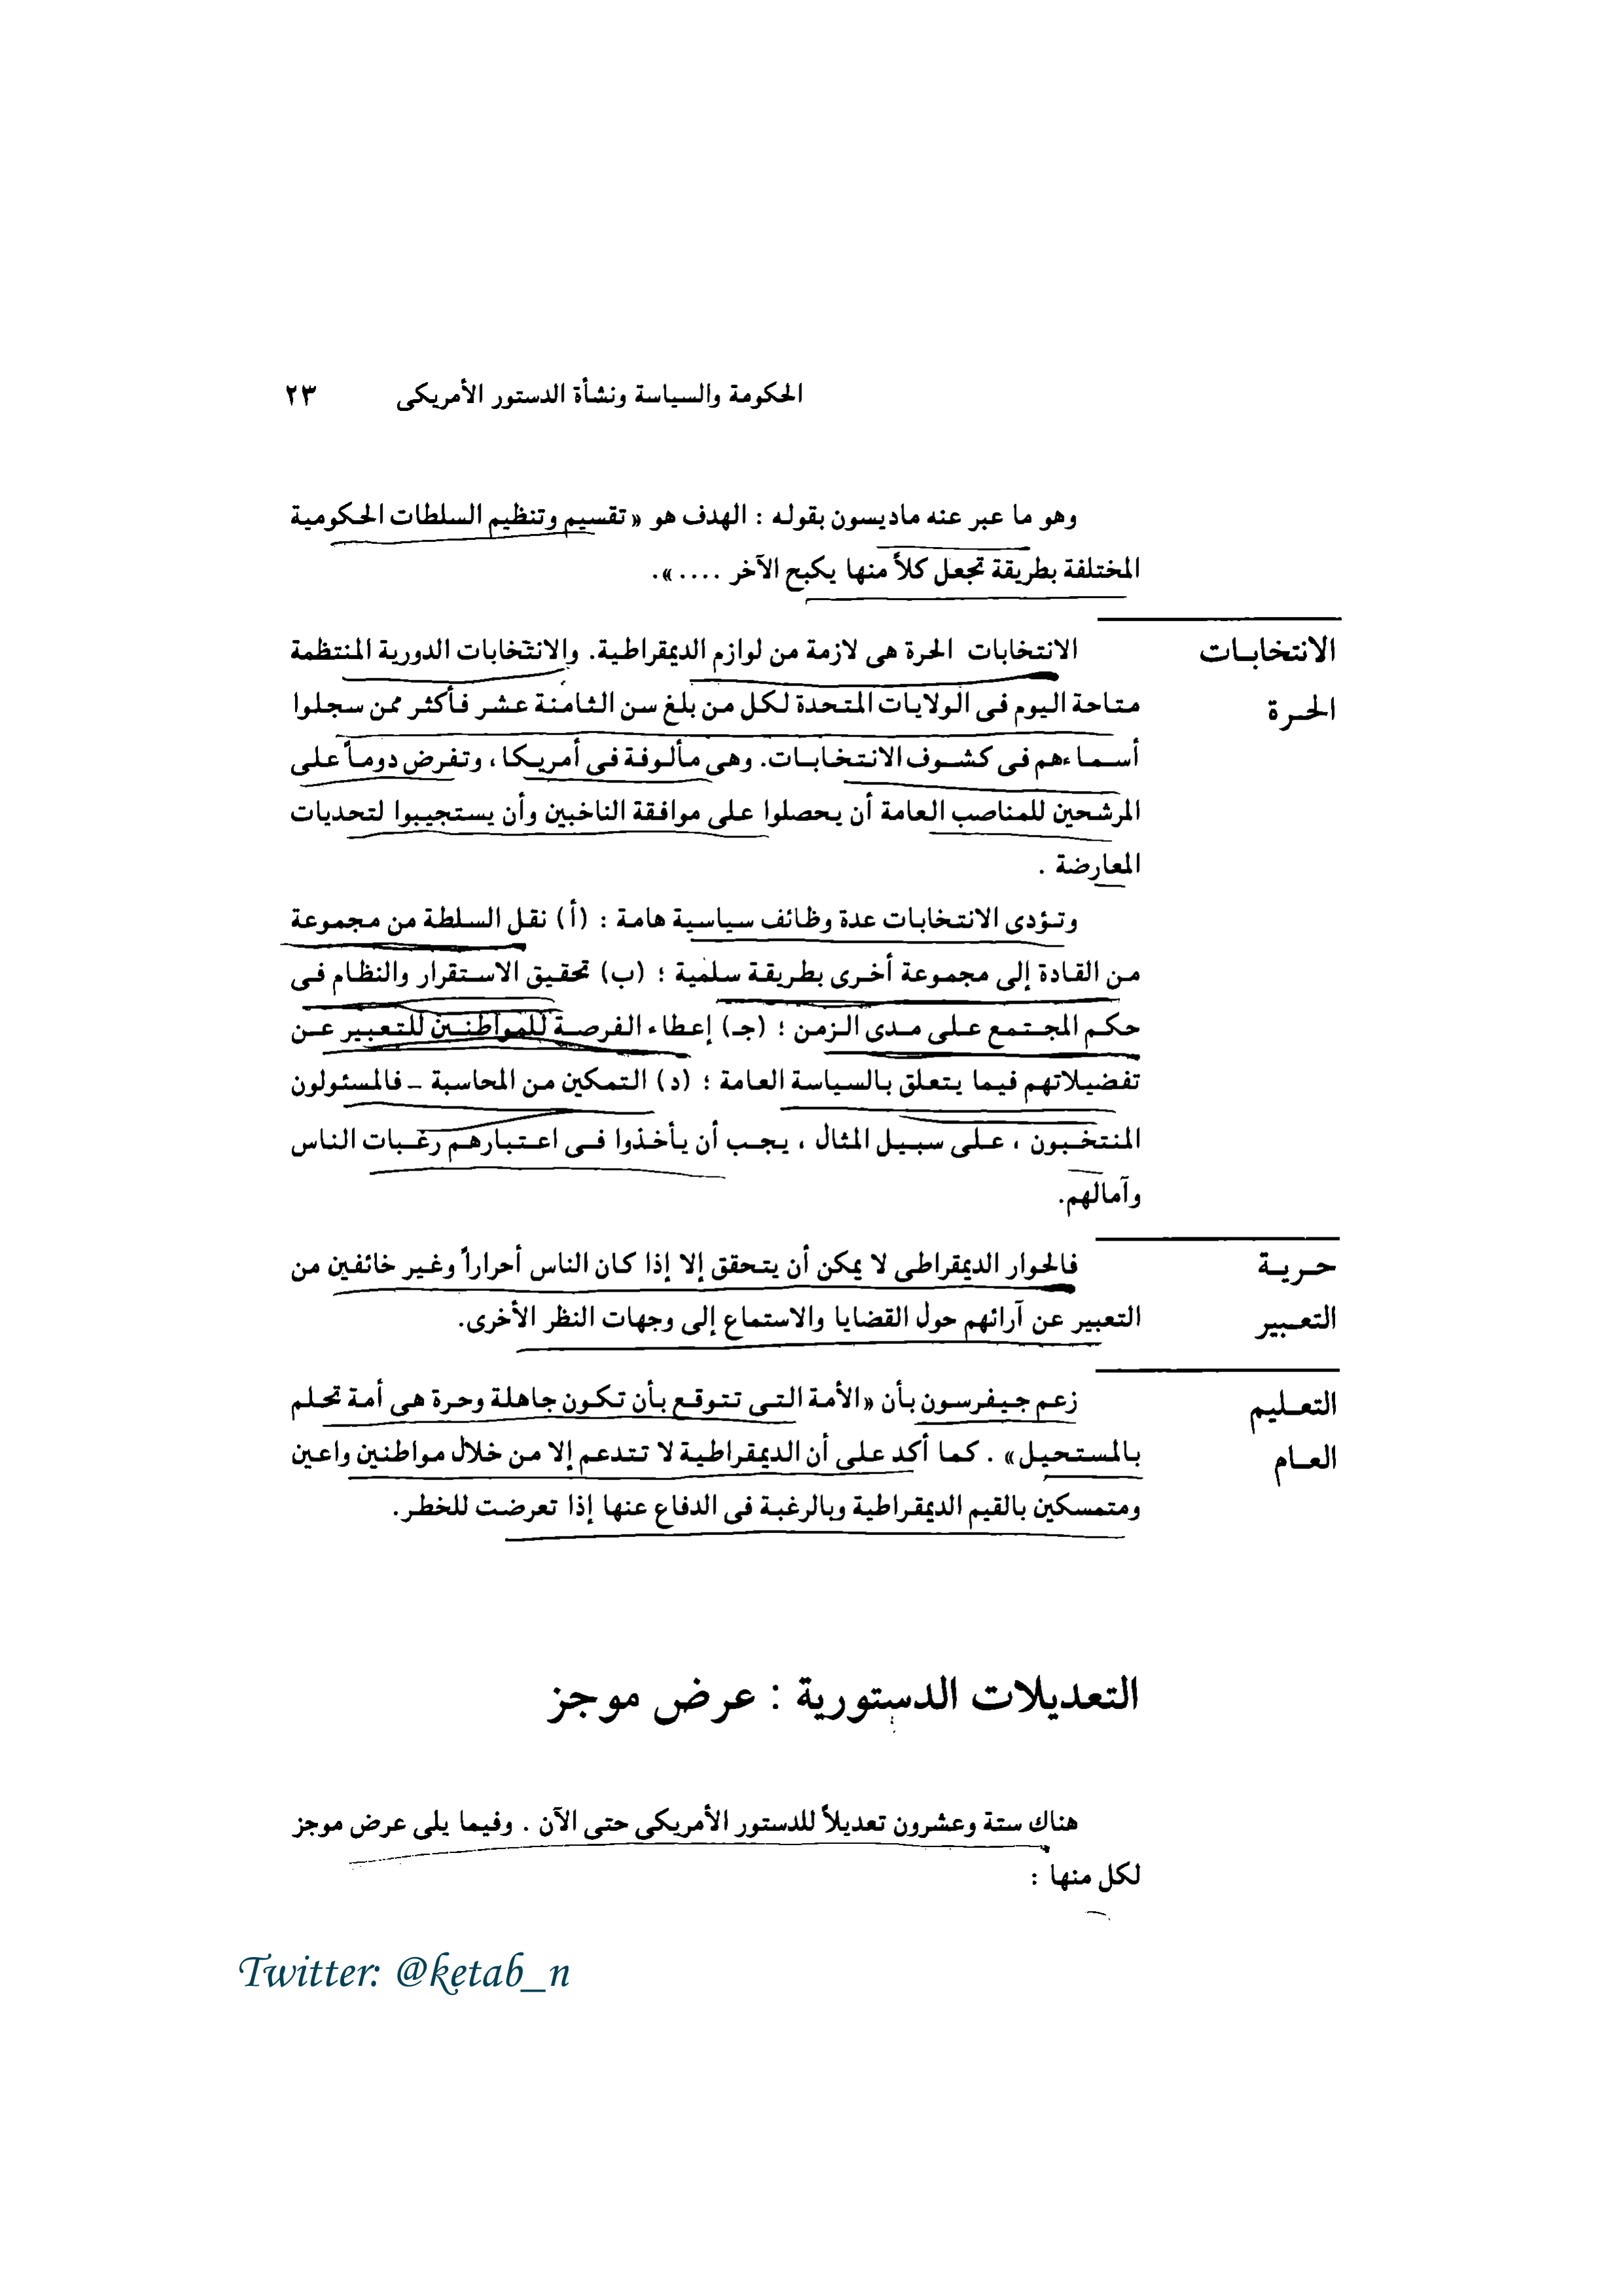 الحكومة والسياسة ونشأة الدستور الأمريكى ٢٣
وهو ما عبر عنه ماديسون بقوله : الهدف هو « تقسيم وتنظيم السلطات الحكومية
المختلفة بطريقة تجعل كلاً منها يكبح الآخر .... ».
الانتخابات
الحرة
الانتخابات الحرة هى لازمة من لوازم الديمقراطية. والانتخابات الدورية المنتظمة
متاحة اليوم فى الولايات المتحدة لكل من بلغ سن الثامنة عشر فأكثر ممن سجلوا
أسماءهم فى كشوف الانتخابات. وهى مألوفة فى أمريكا ، وتفرض دوماً على
المرشحين للمناصب العامة أن يحصلوا على موافقة الناخبين وأن يستجيبوا لتحديات
المعارضة .
وتؤدى الانتخابات عدة وظائف سياسية هامة : (أ) نقل السلطة من مجموعة
من القادة إلى مجموعة أخرى بطريقة سلمية ؛ (ب) تحقيق الاستقرار والنظام فى
حكم المجتمع على مدى الزمن ؛ (جـ) إعطاء الفرصة للمواطنين للتعبير عن
تفضيلاتهم فيما يتعلق بالسياسة العامة ؛ (د) التمكين من المحاسبة – فالمسئولون
المنتخبون ، على سبيل المثال ، يجب أن يأخذوا فى اعتبارهم رغبات الناس
وآمالهم.
حرية
التعبير
فالحوار الديمقراطى لا يمكن أن يتحقق إلا إذا كان الناس أحراراً وغير خائفين من
التعبير عن آرائهم حول القضايا والاستماع إلى وجهات النظر الأخرى.
التعليم
العام
زعم جيفرسون بأن «الأمة التى تتوقع بأن تكون جاهلة وحرة هى أمة تحلم
بالمستحيل» . كما أكد على أن الديمقراطية لا تتدعم إلا من خلال مواطنين واعين
ومتمسكين بالقيم الديمقراطية وبالرغبة فى الدفاع عنها إذا تعرضت للخطر.
التعديلات الدستورية : عرض موجز
هناك ستة وعشرون تعديلاً للدستور الأمريكى حتى الآن . وفيما يلى عرض موجز
لكل منها :
Twitter: @ketab_n